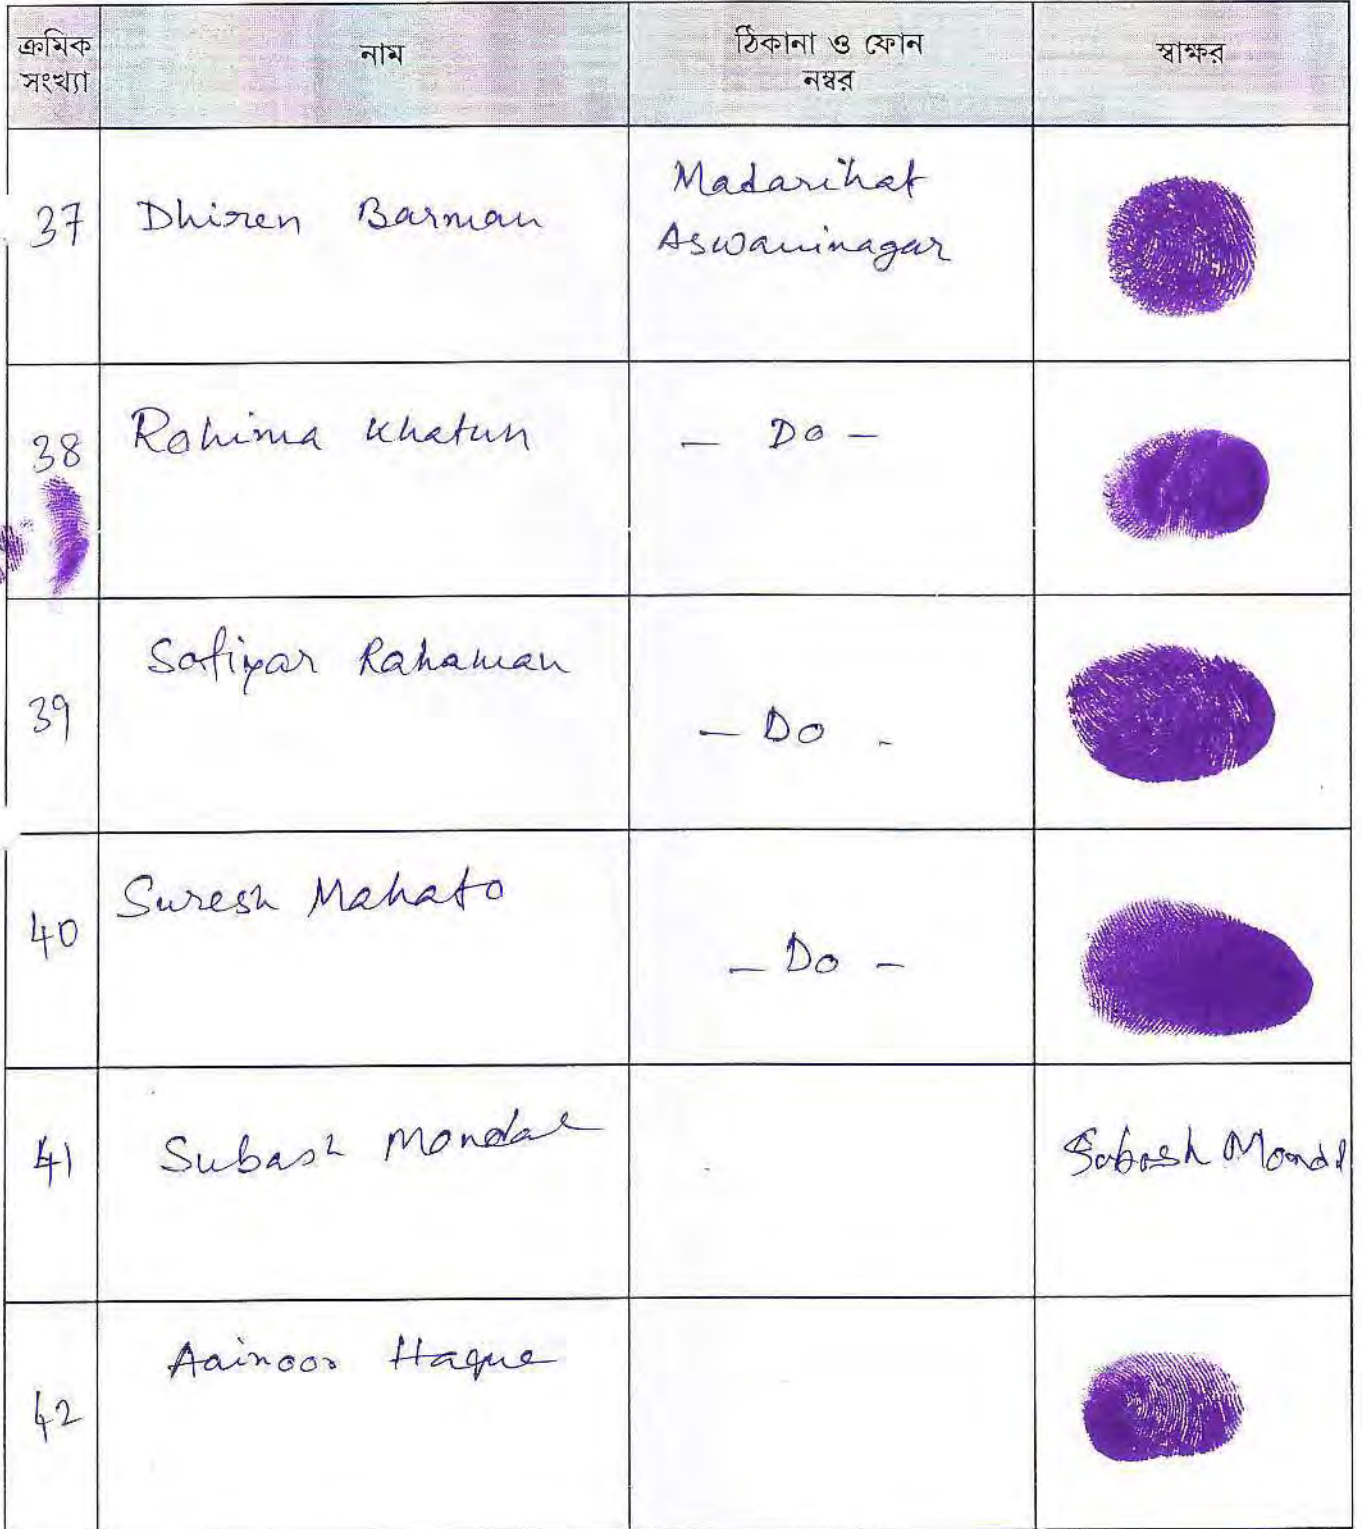 ক্রমিক সংখ্যা
নাম
ঠিকানা ও ফোন নম্বর
স্বাক্ষর
37 Dhiren Barman Madarihat
Aswaninagar
38 Rohima Khatun — Do —
39 Sofiyar Rahaman — Do -
40 Suresh Mahato — Do —
41 Subash Mondal Sobash Mondl
42 Aainoor Haque